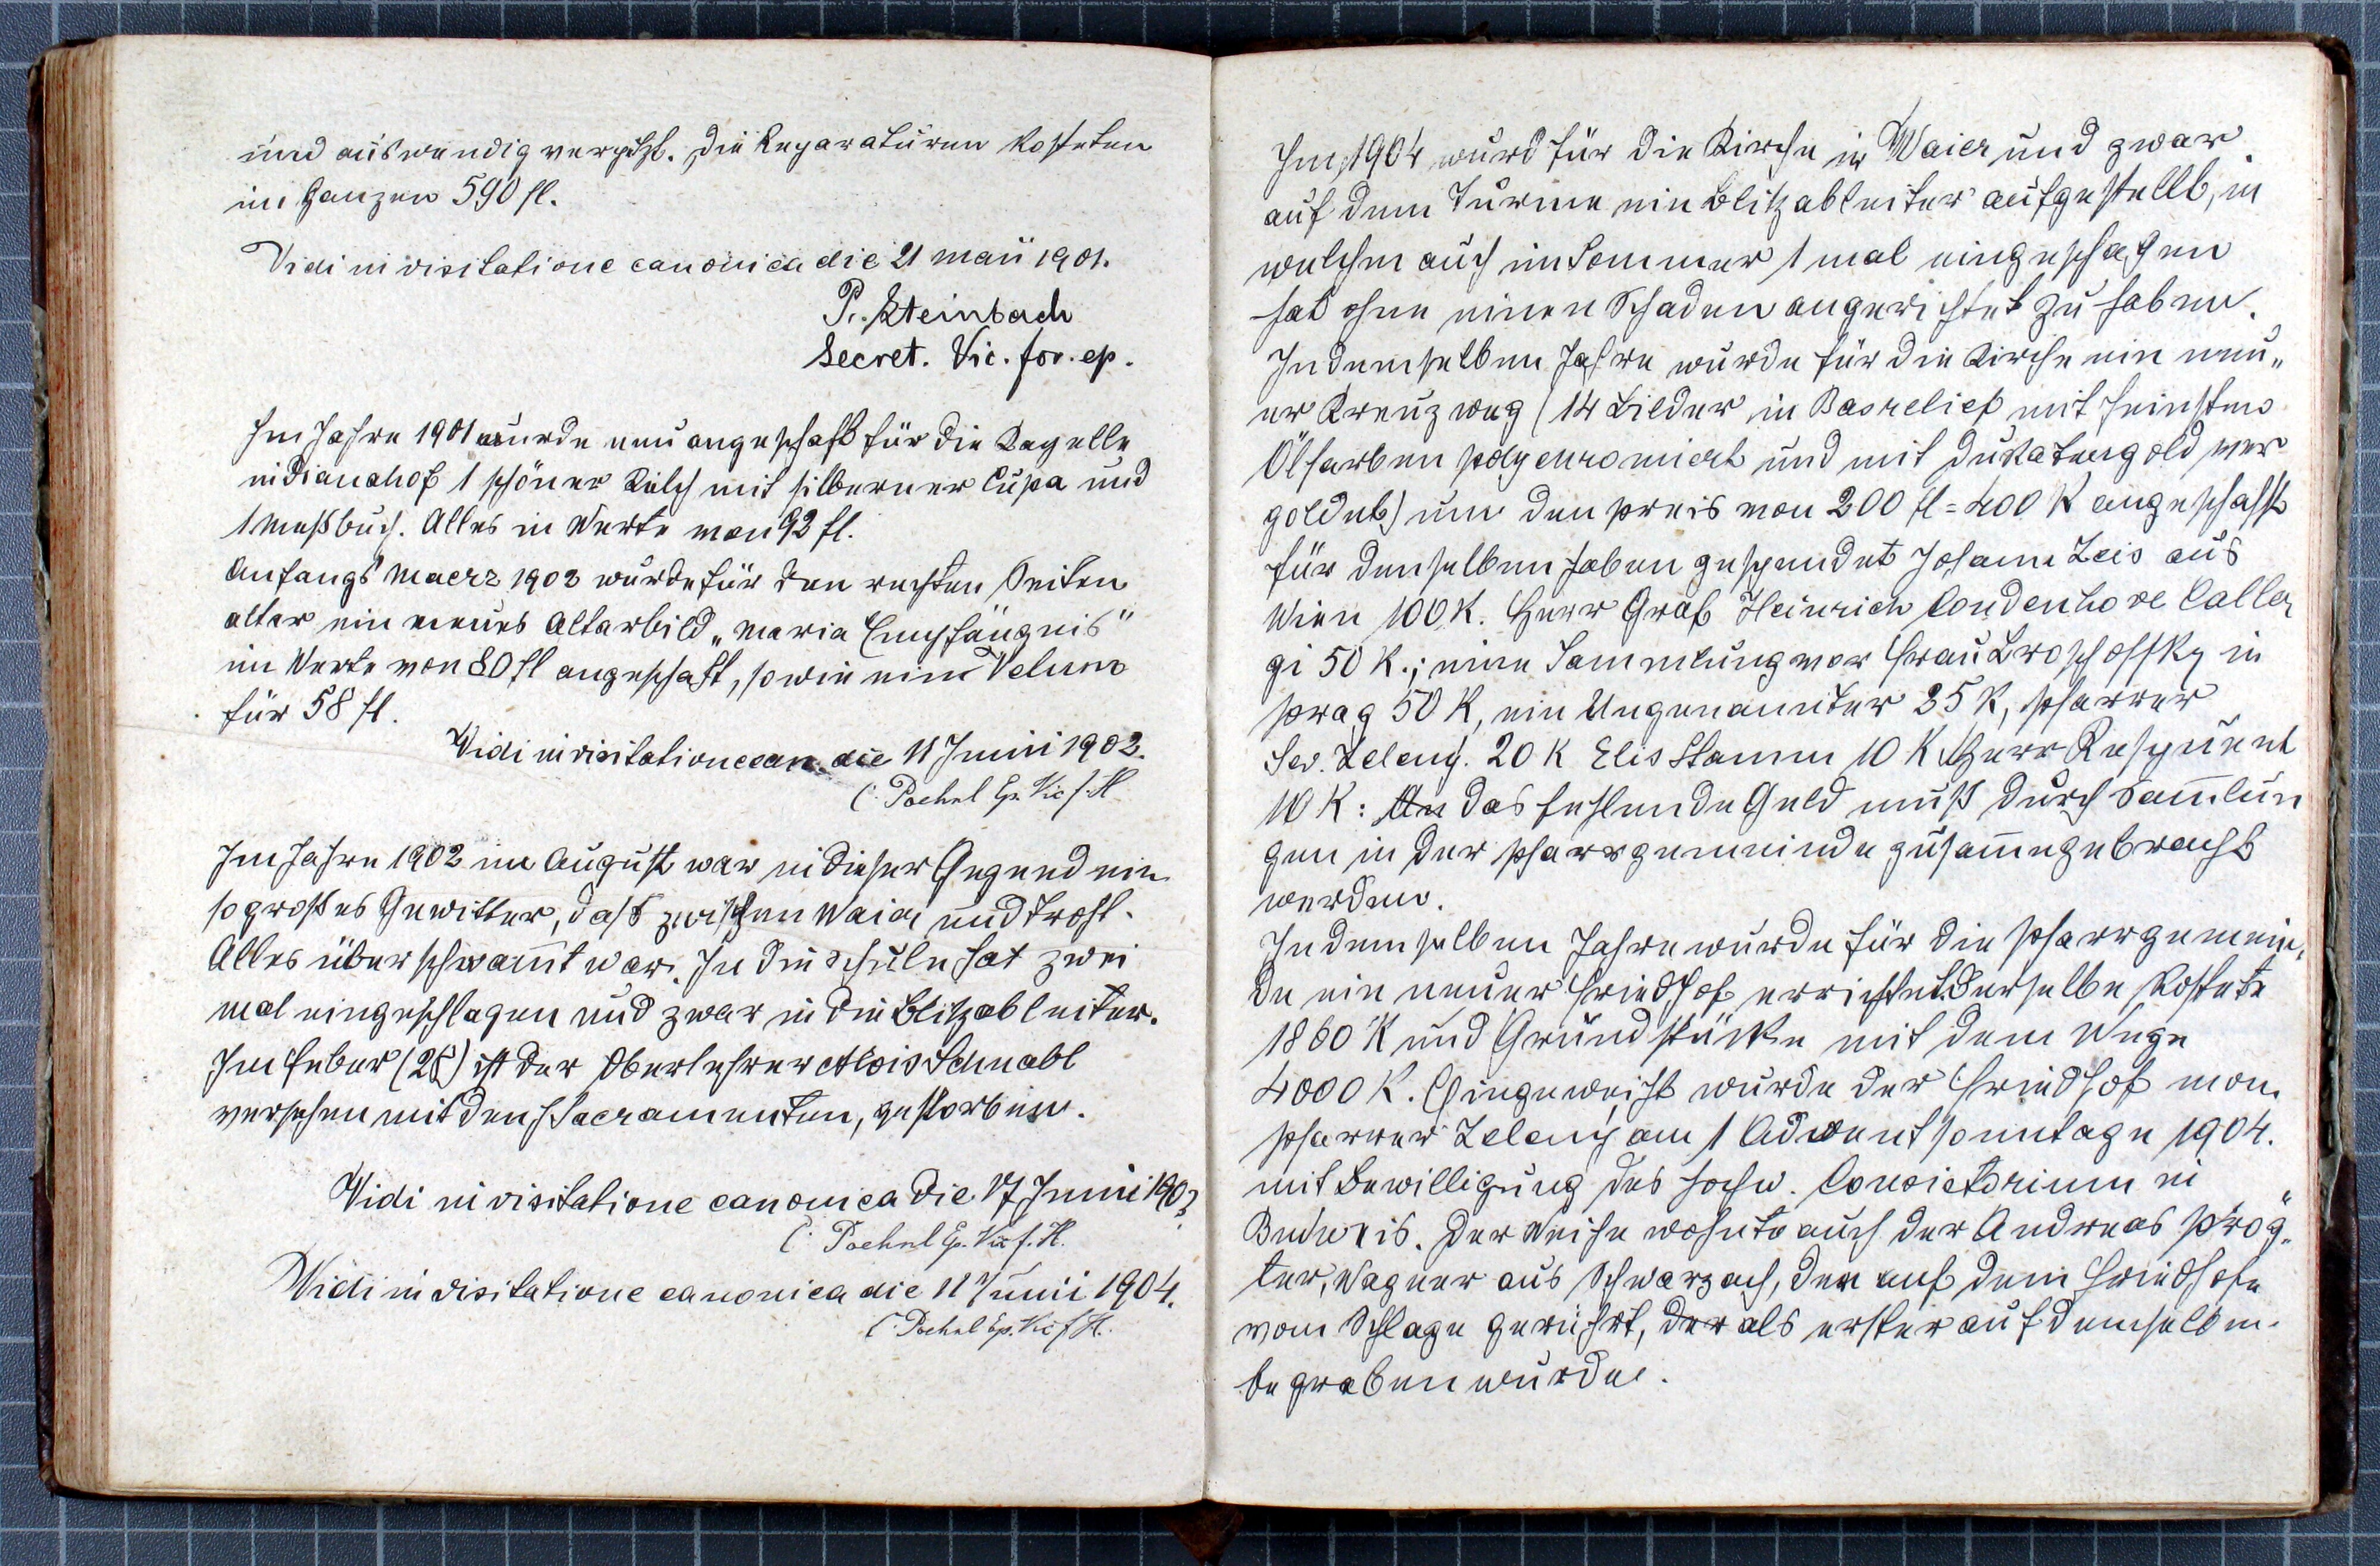 und auswendig verputzt. Die Reparaturen kosteten
im Ganzen 590 fl.
Vidi in visitatione canonica die 21 maii 1901.
P. Steinbach
Secret. Vic. for. ep.
Im Jahre 1901 wurde neu angeschaft für die Kapelle
in Dianahof 1 schöner Kelch mit silberner Cupa und
1 Meßbuch. Alles in Werte von 92 fl.
Anfangs Maerz 1902 wurde für den rechten Seiten
altar ein neues Altarbild „Maria Empfängnis"
im Werte von 80 fl angeschaft, sowie ein Velum
für 58 fl.
Vidi in visitatione can. die 11 Junii 1902.
C. Pochnl Ep. Vic f. H
Im Jahre 1902 im August war in dieser Gegend ein
so großes Gewitter, daß zwischen Waier und Trohl.
Alles überschwam̄t war. In die Schule hat zwei
mal eingeschlagen und zwar in die Blitzableiter.
Im Feber (28) ist der Oberlehrer Alois Schnabl
versehen mit den h Sacramenten, gestorben.
Vidi in visitatione canonica die 17 Junii 1903
C. Pochnl Ep. Vic f. H.
Vidi in visitatione canonica die 11 Junii 1904.
C. Pochnl Ep. Vic f H.
Im J 1904 wurd für die Kirche in Waier und zwar
auf dem Turme ein Blitzableiter aufgestellt, in
welchen auch im Sommer 1 mal eingeschlagen
hat ohne einen Schaden angerichtet zu haben.
In demselben Jahre wurde für die Kirche ein neu„
er Kreuzweg (14 Bilder in Basrelief mit feinsten
Ölfarben polychromiert und mit Dukatengold ver
goldet) um den Preis von 200 fl = 400 K angeschafft
für denselben haben gespendet Johann Zeis aus
Wien 100 K. Herr Graf Heinrich Coudenhove Caller
gi 50 K.; eine Sammlung von Frau Broschoffky in
Prag 50 K, ein Ungenannter 25 K, Pfarrer
Sev. Zeleny. 20 K Elis Stamm 10 K Herr Respicient
10 K: das fehlende Geld muß durch Sam̄lun
gen in der Pfarrgemeinde zusam̄egebracht
werden.
In demselben Jahre wurde für die Pfarrgemein„
de ein neuer Friedhof errichtet. Derselbe kostete
1860 K und Grundstücke mit dem Wege
4000 K. Eingeweiht wurde der Friedhof von
Pfarrer Zeleny am 1 Adventsonntage 1904.
mit Bewilligung des hochw. Consistorium in
Budweis. Der Weihe wohnte auch der Andreas Prög„
ler, Wagner aus Schwarzach, der auf dem Friedhofe
vom Schlage gerührt, der als erster auf demselben
begraben wurde.